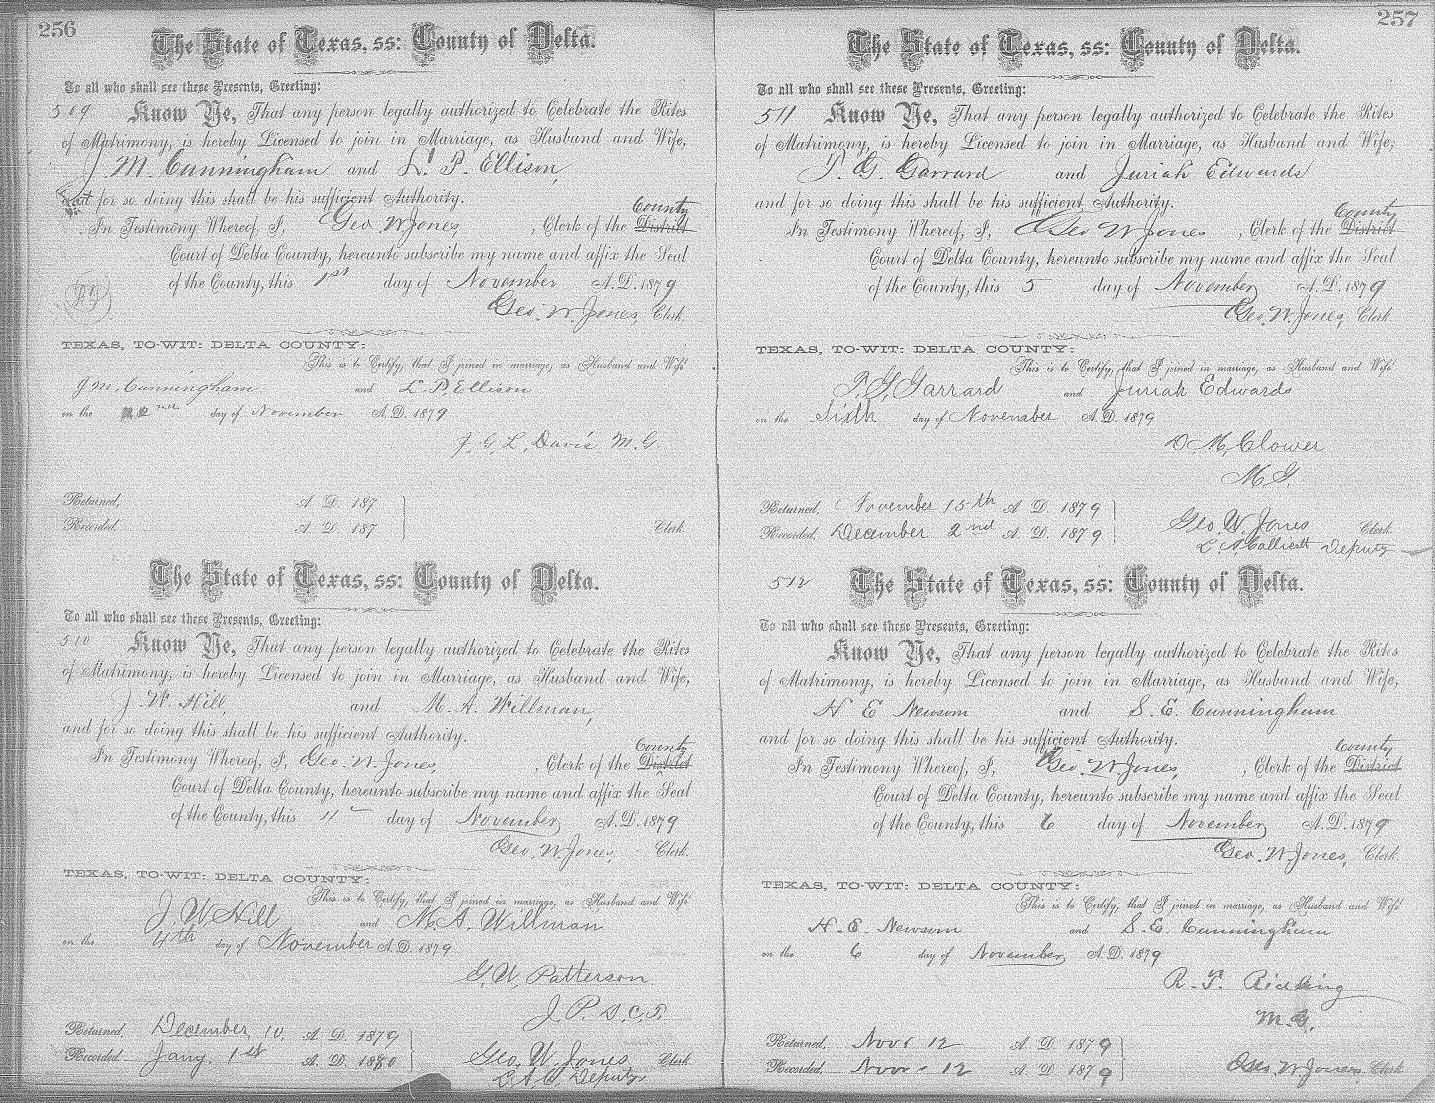 256
The State of Texas, ss: County of Delta.
To all who shall see these Presents, Greeting:
509 Know Ye, That any person legally authorized to Celebrate the Rites
of Matrimony, is hereby Licensed to join in Marriage, as Husband and Wife,
J. M. Cunningham and L. P. Ellison,
and for so doing this shall be his sufficient Authority.
In Testimony Whereof, I, Geo W Jones, Clerk of the District County
Court of Delta County, hereunto subscribe my name and affix the Seal
of the County, this 1st day of November A. D. 1879
Geo. W. Jones, Clerk.
TEXAS, TO-WIT: DELTA COUNTY:
This is to Certify, that I joined in marriage, as Husband and Wife
J M. Cunningham and L. P. Ellison
on the 2nd day of November A. D. 1879
J. G. L. Davis M. G.
Returned, A. D. 187
Recorded A. D. 187 Clerk
The State of Texas, ss: County of Delta.
To all who shall see these Presents, Greeting:
510 Know Ye, That any person legally authorized to Celebrate the Rites
of Matrimony, is hereby Licensed to join in Marriage, as Husband and Wife,
J. W. Hill and M. A. Willman,
and for so doing this shall be his sufficient Authority.
In Testimony Whereof, I, Geo. W. Jones, Clerk of the District County
Court of Delta County, hereunto subscribe my name and affix the Seal
of the County, this day of November A. D. 1879
Geo. W. Jones, Clerk.
TEXAS, TO-WIT: DELTA COUNTY:
This is to Certify, that I joined in marriage, as Husband and Wife
J. W Hill and M. A. Willman
on the 4th day of November A. D. 1879
G. W. Patterson
J. P. D. C. T.
Returned, December 10, A. D. 1879
Recorded Jany. 1st A. D. 1880 Geo. W. Jones Clerk
L. A. C Deputy
257
The State of Texas, ss: County of Delta.
To all who shall see these Presents, Greeting:
511 Know Ye, That any person legally authorized to Celebrate the Rites
of Matrimony, is hereby Licensed to join in Marriage, as Husband and Wife,
P. G. Garrard and Juriah Edwards
and for so doing this shall be his sufficient Authority.
In Testimony Whereof, I, Geo W Jones, Clerk of the District County
Court of Delta County, hereunto subscribe my name and affix the Seal
of the County, this 5 day of November A. D. 1879
Geo. W Jones, Clerk
TEXAS, TO-WIT: DELTA COUNTY:
This is to Certify, that I joined in marriage, as Husband and Wife
P. G. Garrard and Juriah Edwards
on the Sixth day of November A. D. 1879
D M. Clower
M. G.
Returned, November 15th A. D. 1879
Recorded, December 2nd A. D. 1879 Geo. W. Jones Clerk
L A Callicott Deputy
512 The State of Texas, ss: County of Delta.
To all who shall see these Presents, Greeting:
Know Ye, That any person legally authorized to Celebrate the Rites
of Matrimony, is hereby Licensed to join in Marriage, as Husband and Wife,
H E Newsom and S. E. Cunningham
and for so doing this shall be his sufficient Authority.
In Testimony Whereof, I, Geo. W Jones, Clerk of the District County
Court of Delta County, hereunto subscribe my name and affix the Seal
of the County, this 6 day of November A. D. 1879
Geo. W Jones, Clerk.
TEXAS, TO-WIT: DELTA COUNTY:
This is to Certify, that I joined in marriage, as Husband and Wife
H. E. Newsom and S. E. Cunningham
on the 6 day of November A. D. 1879
R. F.
M. G.
Returned, Nov 12 A. D. 1879
Recorded Nov 12 A. D. 1879 Geo. W Jones, Clerk